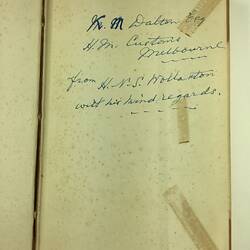 K. M Dalton Esq
H. M. Customs
Melbourne
from H. N. S. Wollaston
with his kind regards.